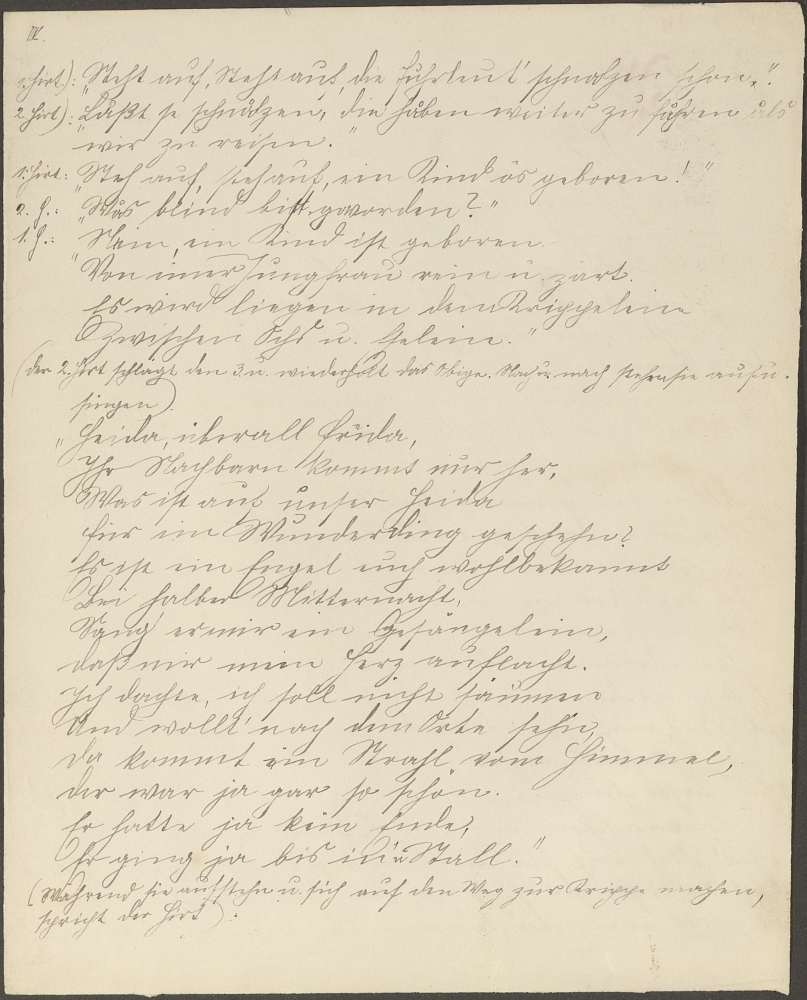 IX.
1. Hirt): "Steht auf, steht auf, die Fuhrleut' schnalzen schon."
2. Hirt): "Laßt se schnålzen, die håben weiter zu fåhren åls
wir zu reisen."
1. Hirt: "Steh auf, steh auf, ein Kind ös geboren!"
2. H.: "Wås blind bist gworden?"
1. H.: "Nein, ein Kind ist geboren
Von einer Jungfrau rein u. zart.
Es wird liegen in dem Krippelein
Zwischen Ochs u. Eselein."
(der 2. Hirt schlagt den 3. u. wiederholt das Obige. Nach u. nach stehen sie auf u.
singen).
"Heida, überall Frieda,
Ihr Nachbarn kommt nur her,
Was ist auf unser Heida
für ein Wunderding geschehn?
Es ist ein Engel euch wohlbekannt
Bei halber Mitternacht,
Sang er mir ein Gesängelein,
daß mir mein Herz auflacht.
Ich dachte, ich soll nicht säumen
Und wollt' nach dem Orte sehn,
Da kommt ein Strahl vom Himmel,
der war ja gar so schön.
Er hatte ja kein Ende,
Er ging ja bis in'n Stall."
(Während sie aufstehn u. sich auf den Weg zur Krippe machen,
spricht der Hirt):